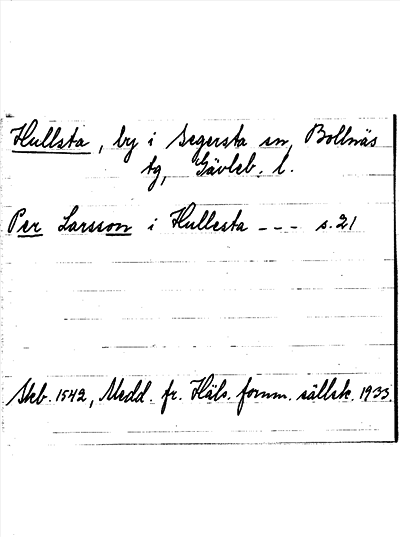 Hullsta, by i Segersta sn, Bollnäs
tg, Gävleb. l.
Per Larsson i Hullesta --- s. 21
Skb. 1542, Medd. fr. Häls. fornm. sällsk. 1933.